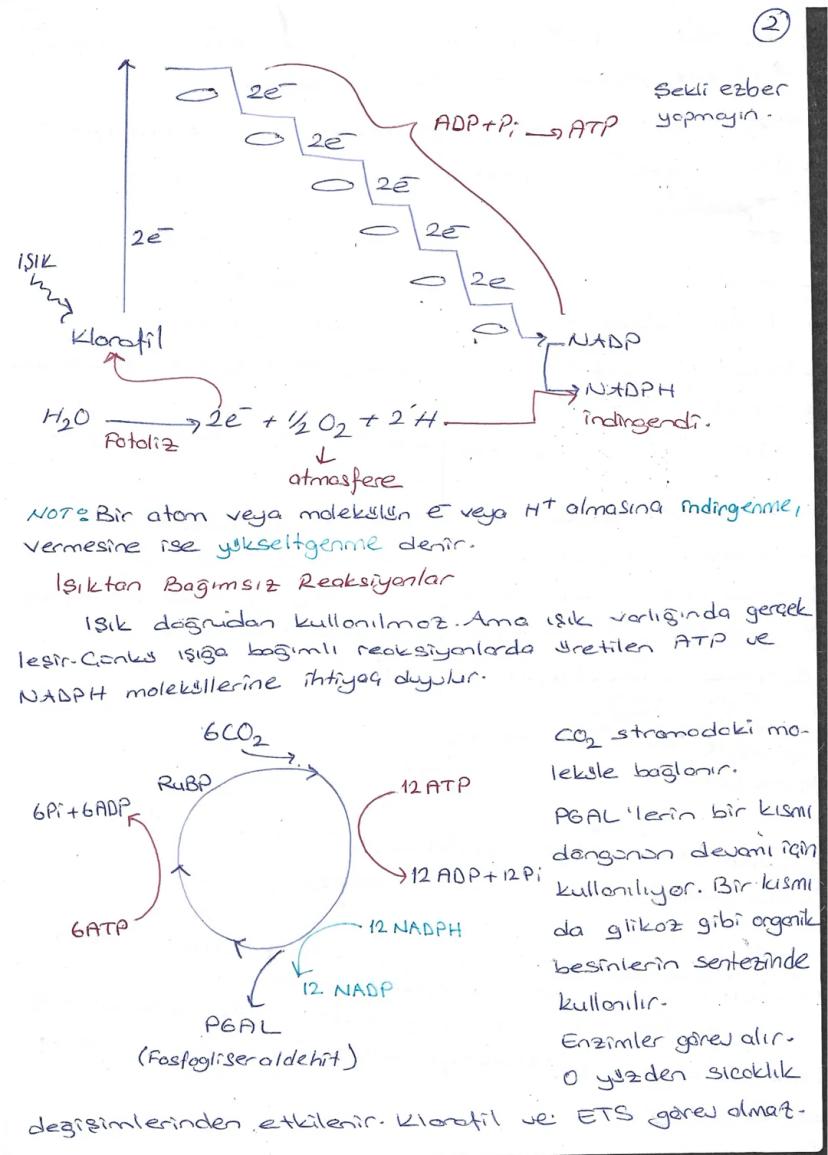 2
Şekli ezber
yapmayın.
2e⁻
ADP+Pi → ATP
2e⁻
2e⁻
2e⁻
2e
2e⁻
IŞIK
Klorofil
NADP
NADPH
indirgendi.
H₂O → 2e⁻ + ½ O₂ + 2⁺H
Fotoliz
↓
atmosfere
NOT: Bir atom veya molekülün e⁻ veya H⁺ almasına indirgenme,
vermesine ise yükseltgenme denir.
Işıktan Bağımsız Reaksiyonlar
Işık doğrudan kullanılmaz. Ama ışık varlığında gerçek
leşir. Çünkü ışığa bağımlı reaksiyonlarda üretilen ATP ve
NADPH moleküllerine ihtiyaç duyulur.
6CO₂
RuBP
6Pi+6ADP
6ATP
12 ATP
12 ADP+12Pi
12 NADPH
12 NADP
PGAL
(Fosfogliseraldehit)
CO₂ stromadaki mo-
lekülle bağlanır.
PGAL'lerin bir kısmı
döngünün devamı için
kullanılıyor. Bir kısmı
da glikoz gibi organik
besinlerin sentezinde
kullanılır.
Enzimler görev alır.
O yüzden sıcaklık
değişimlerinden etkilenir. Klorofil ve ETS görev almaz.